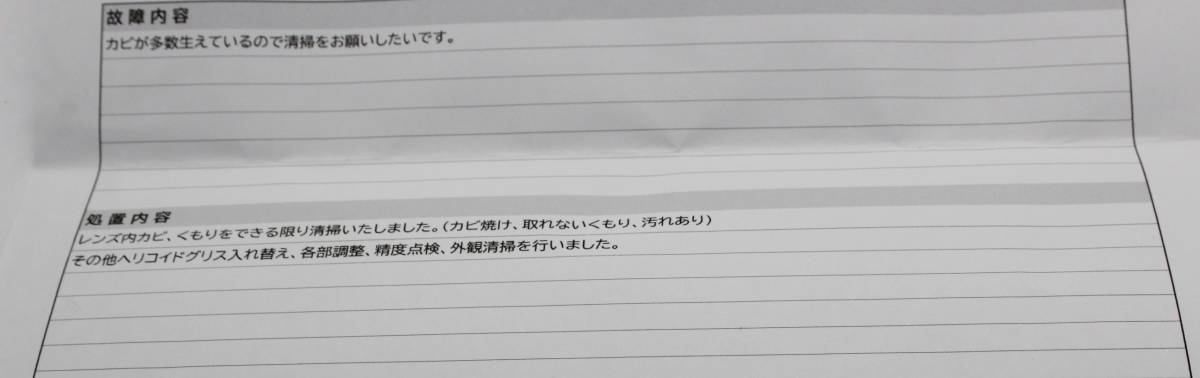 故障内容
カビが多数生えているので清掃をお願いしたいです。
処置内容
レンズ内カビ、くもりをできる限り清掃いたしました。(カビ焼け、取れないくもり、汚れあり)
その他ヘリコイドグリス入れ替え、各部調整、精度点検、外観清掃を行いました。